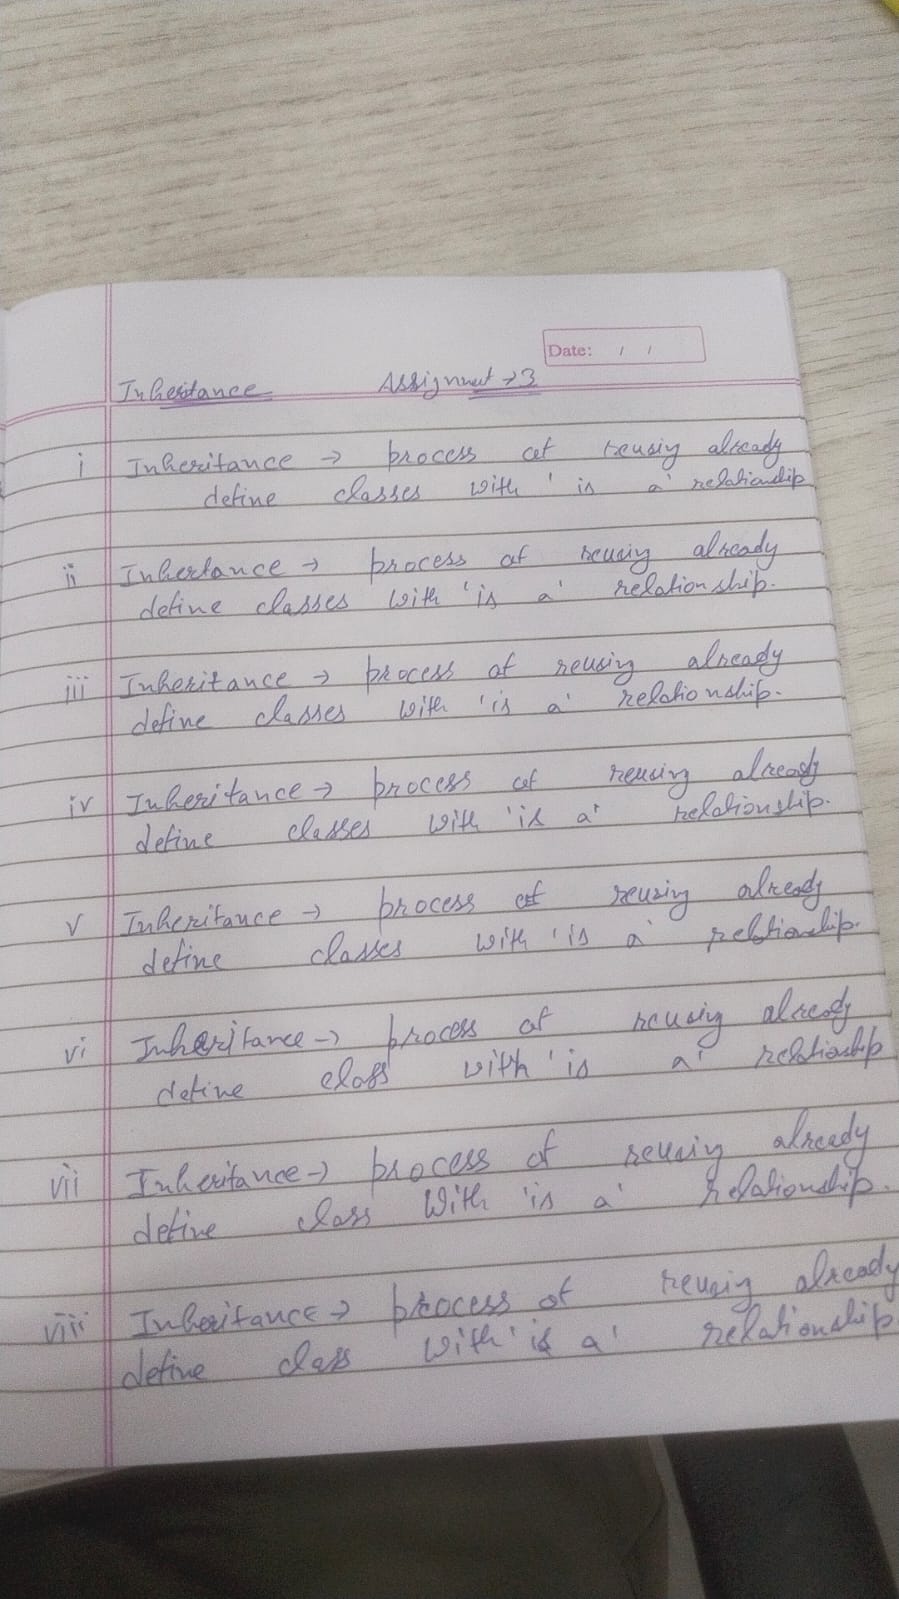 Date: / /
Inheritance Assignment → 3
i Inheritance → process of reusing already
define classes with 'is a' relationship
ii Inheritance → process of reusing already
define classes with 'is a' relationship.
iii Inheritance → process of reusing already
define classes with 'is a' relationship.
iv Inheritance → process of reusing already
define classes with 'is a' relationship.
v Inheritance → process of reusing already
define classes with 'is a' relationship.
vi Inheritance → process of reusing already
define class with 'is a' relationship
vii Inheritance → process of reusing already
define class with 'is a' relationship.
viii Inheritance → process of reusing already
define class with 'is a' relationship